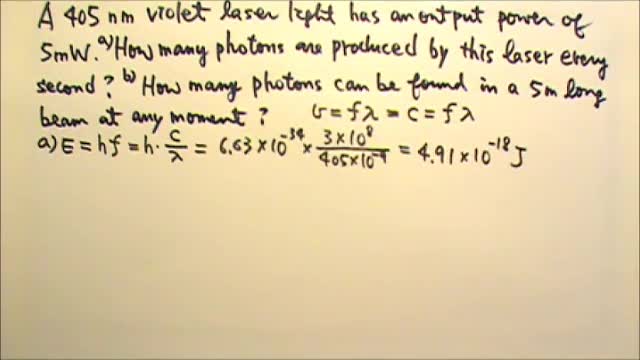 A 405 nm violet laser light has an output power of
5mW. a) How many photons are produced by this laser every
second? b) How many photons can be found in a 5m long
beam at any moment? v = fλ = c = fλ
a) E = hf = h · c/λ = 6.63 × 10^-34 × (3 × 10^8)/(405 × 10^-9) = 4.91 × 10^-18 J